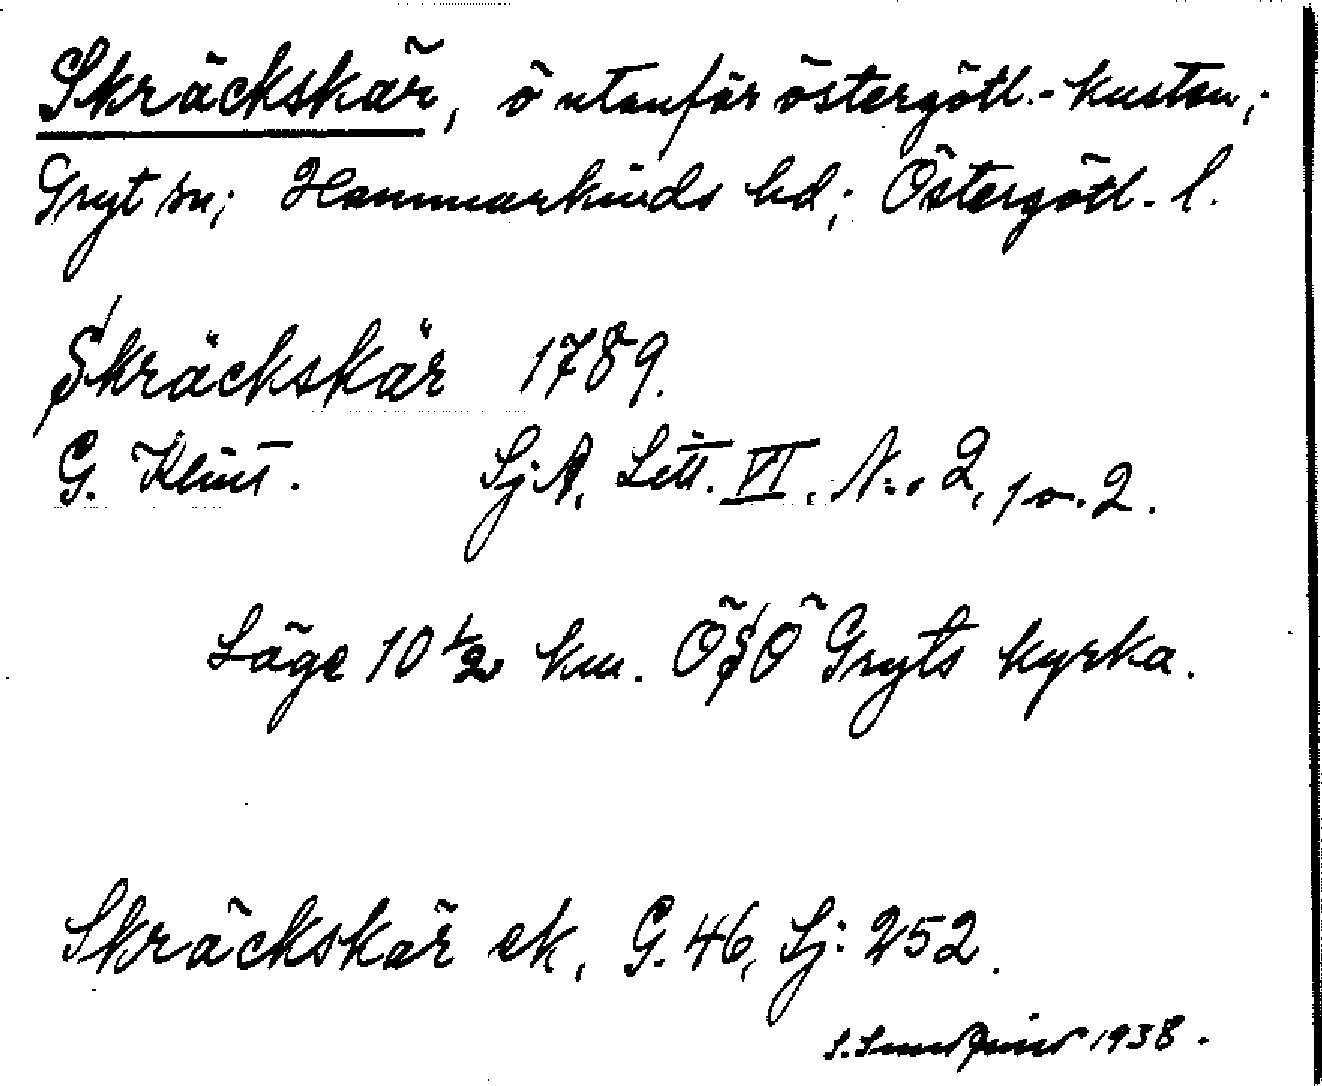 Skräckskär, ö utanför östergötl.-kusten,
Gryt sn; Hammarkinds hd; Östergötl. l.
Skräckskär 1789.
G. Klint. Sj. A. Litt. VI. N:o 2,
Läge 10 1/2 km. ÖSÖ Gryts kyrka.
Skräckskär ek, G. 46, Sj: 252.
S. 1938.